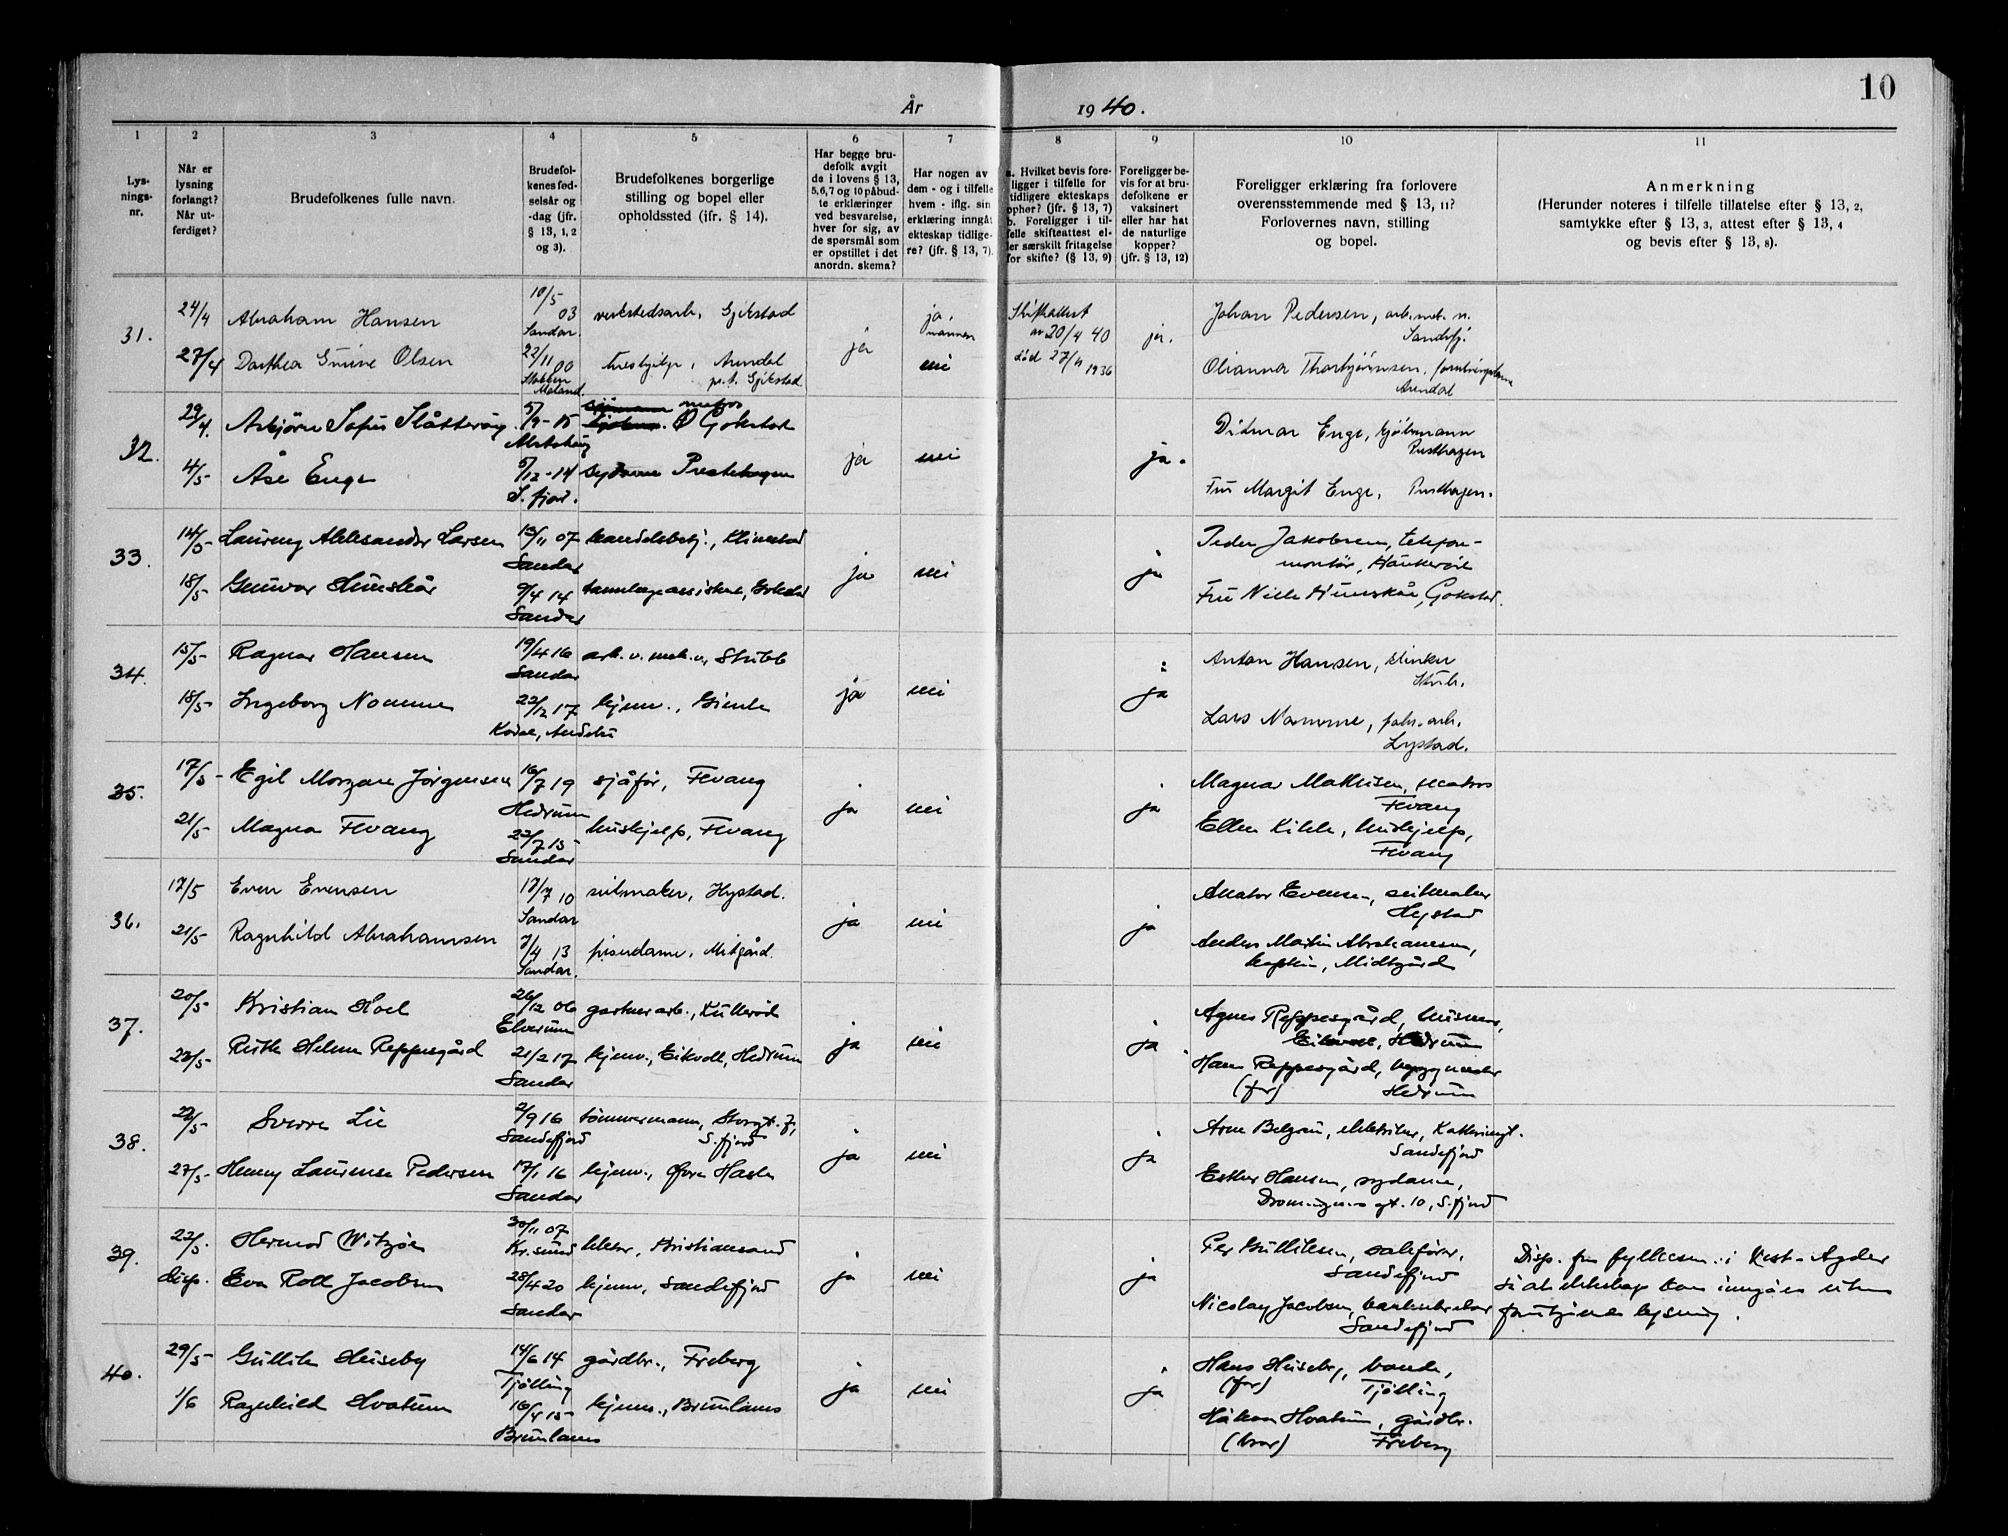 10
År 1940.
1 2 3 4 5 6 7 8 9 10 11
Lys-
nings-
nr.
Når er
lysning
forlangt?
Når ut-
ferdiget?
Brudefolkenes fulle navn.
Brudefol-
kenes fød-
selsår og
-dag (jfr.
§ 13, 1, 2
og 3).
Brudefolkenes borgerlige
stilling og bopel eller
opholdssted (ifr. § 14).
Har begge bru-
defolk avgit
de i lovens § 13,
5,6,7 og 10 påbud-
te erklæringer
ved besvarelse,
hver for sig, av
de spørsmål som
er opstillet i det
anordn. skema?
Har nogen av
dem - og i tilfelle
hvem - iflg. sin
erklæring inngåt
ekteskap tidlige-
re? (jfr. § 13, 7).
a. Hvilket bevis fore-
ligger i tilfelle for
tidligere ekteskaps
ophør? (jfr. § 13, 7)
b. Foreligger i til-
felle skifteattest el-
ler særskilt fritagelse
for skifte? (§ 13, 9)
Foreligger be-
vis for at bru-
defolkene er
vaksinert
eller har hat
de naturlige
kopper?
(jfr. § 13, 12)
Foreligger erklæring fra forlovere
overensstemmende med § 13, 11?
Forlovernes navn, stilling
og bopel.
Anmerkning
(Herunder noteres i tilfelle tillatelse efter § 13, 2,
samtykke efter § 13, 3, attest efter § 13, 4
og bevis efter § 13, 8).
31.
24/4 Abraham Hansen 10/5 03 Sandar. verkstedsarb., Gjekstad ja, mannen Skifteattest av 20/4 40 Johan Pedersen, arb. mek. v. Sandefj.
27/4 Dorthea Olsen 22/11 00 Arendal p.t. Gjekstad ja nei død 1936 ja. Olianna Thorbjörnsen, Arendal
32.
29/4. Asbjørn 5/9-15 matros Gokstad Ditmar Enge, Presthagen
4/5 Åse Enge 5/12-14 S.fjord. sydame Prestehagen ja nei ja. Fru Margit Enge, Presthagen.
33.
14/5 Aleksander Larsen 13/11 07 Sandar handelsbetj., Peder Jakobsen, telefon-
montør,
18/5 Gunvor Hunskår 9/4 14 Sandar tannlegeassistent, Gokstad ja nei ja Fru Hunskår, Gokstad.
34.
15/5 Ragnar Hansen 19/4 16 Sandar arb. v. mek. v., Stubb Anton Hansen, klinker Stub.
18/5 Ingeborg Namme 22/12 17 Kodal, Andebu hjemv., Gimle ja nei ja Lars Namme, fabr. arb. Lystad.
35.
17/5 Egil Jørgensen 16/7 19 Hedrum sjåfør, Fevang Magnar Mathisen, matros Fevang
21/5 Magna Fevang 22/7 15 Sandar huskjelp, Fevang ja nei ja Ellen, huskjelp, Fevang
36.
17/5 Even Evensen 17/7 10 Sandar seilmaker, Hystad. Evensen, seilmaker Hystad
21/5 Ragnhild Abrahamsen 7/4 13 Sandar. frisørdame, Mitgård. ja nei ja Anders Martin Abrahamsen,
kaptein, Midtgård
37.
20/5 Kristian Hoel 26/12 06 Elverum gartnerarb., Kullerød Agnes Reppesgård, husmor,
Hedrum
23/5 Ruth Helene Reppesgård 21/2 17 Sandar hjemv., Eikvoll, Hedrum ja nei ja Hans Reppesgård, byggmester
(far) Hedrum
38.
22/5 Sverre Lie 2/9 16 Sandefjord tømmermann, Storgt. 7, S.fjord Arne, elektriker, Sandefjord
27/5 Henny Laurense Pedersen 17/1 16 Sandar hjemv., Øvre Hasle ja nei ja Esther Hansen, sydame,
Dronningens gt. 10, S.fjord
39.
22/5. Hermod Witzøe 30/11 07 Kr.sund lektor, Kristiansand Per, Sandefjord
disp. Eva Roll Jacobsen 28/4 20 Sandar hjemv., Sandefjord ja nei ja Nicolay Jacobsen, Sandefjord
Disp. fra fylkesm. i Vest-Agder
så at ekteskap kan inngåes uten
forutgående lysning.
40.
29/5 Gullik Huseby 14/6 14 Tjølling gårdbr., Freberg Hans Huseby, bonde,
(far) Tjølling
1/6 Ragnhild Hvatum 16/4 15 Brunlanes hjemv., Brunlanes ja nei ja Håkon Hvatum, gårdbr.
(bror) Freberg